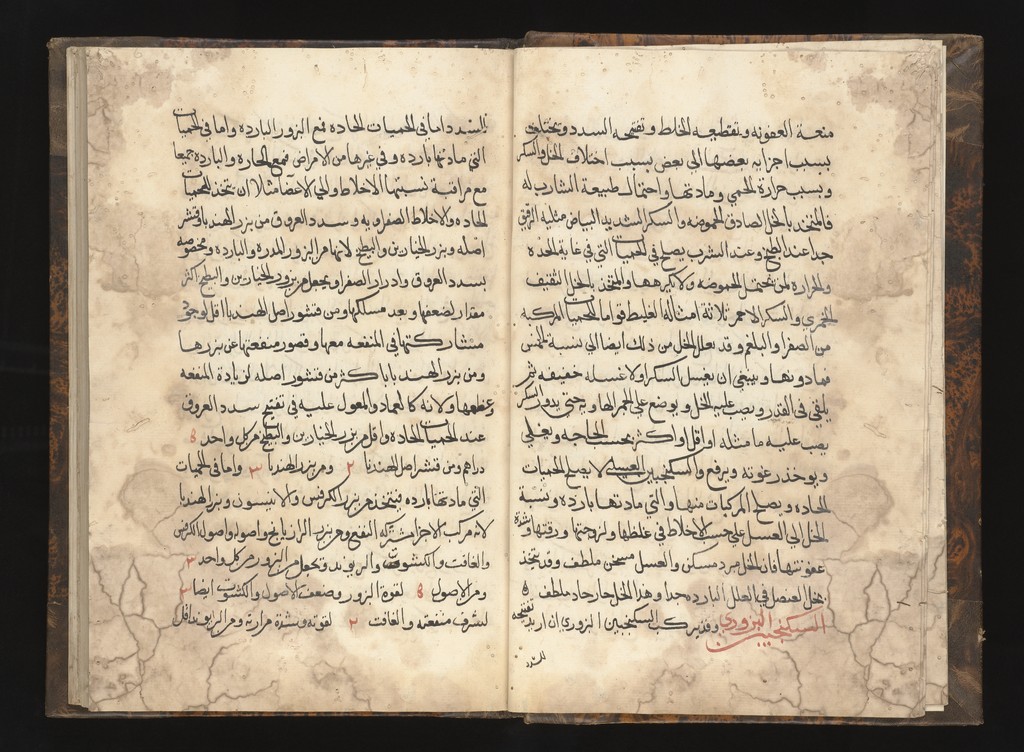 منعة العفونه وتقطيعه الخلط وتفتيحه السدد ويختلف
بسبب اجزايه بعضها الى بعض بسبب اختلاف الخل والسكر
وبسبب حرارة الحمى ومادتها واحتمال طبيعة الشارب له
فالمتخذ بالخل الصادق الحموضه والسكر الشديد البياض مثليه الرقيق
جدا عند الطبخ وعند الشرب يصلح في الحميات التي في غاية الحده
والحراره لمن يحتمل الحموضه ولا يكرهها والمتخذ بالخل الثقيف
الخمري والسكر الاحمر ثلاثة امثاله الغليظ قواما للحميات المركبه
من الصفرا والبلغم وقد يعلل الخل من ذلك ايضا الى نسبة الخمس
فما دونها وينبغي ان يغسل السكر اولا غسله خفيفه ثم
يلقى في القدر ويصب عليه الخل ويوضع على الجمر الهاديه حتى يذوب السكر
يصب عليه ما مثله او اقل او اكثر بحسب الحاجه ويغلى
ويوخذ رغوته ويرفع والسكنجبين العسلي لا يصلح الحميات
الحاده ويصلح المركبات منها والتي مادتها بارده ونسبة
الخل الى العسل على حسب الاخلاط في غلظها ولزوجتها ورقتها وشدة
عفونتها فان الخل مبرد مسكن والعسل مسخن ملطف وقد يتخذ
بخل العنصل في العلل البارده جدا وهذا الخل حار حاد ملطف ه
السكنجبين البزوري وقد يركب السكنجبين البزوري ان اريد تفتيحه
للسدد
للسدد اما في الحميات الحاده فمع البزور البارده واما في الحميات
التي مادتها بارده وفي غيرها من الامراض فمع الحاره والبارده جميعا
مع مراقبة نسبتها الاخلاط والى الاعضا مثلا ان يتخذ للحميات
الحاده والاخلاط الصفراويه وسدد العروق من بزر الهندبا وقشر
اصله وبزر الخيارين والبطيخ لانها من البزور المدره والبارده ومخصوصه
بسدد العروق وادرار الصفرا ويجعل من بزور الخيارين والبطيخ اكثر
مقدارا لضعفها وبعد مسلكها ومن قشور اصل الهندبا اقل لوجود
مشاركتها في المنفعه معها وقصور منفعتها عن بزرها
ومن بزر الهندبا باكثر من قشور اصله لزيادة المنفعه
وعظمها ولانه كالعماد والمعول عليه في تفتيح سدد العروق
عند الحميات الحاده واقل من بزر الخيارين والبطيخ من كل واحد ٥
دراهم ومن قشر اصل الهندبا ٢ ومن بزر الهندبا ٣ واما في الحميات
التي مادتها بارده فيتخذ من بزر الكرفس والانيسون وبزر الهندبا
لانه مركب الاجزا مشترك النفع ومن بزر الرازيانج واصوله واصول الكرفس
والغافت والكشوث والريوند ويجعل من البزور من كل واحد ٣
ومن الاصول ٥ لقوة البزور وضعف الاصول والكشوث ايضا ٣
لشرف منفعته والغافت ٢ لقوته وشدة مرارته ومن الريوند اقل